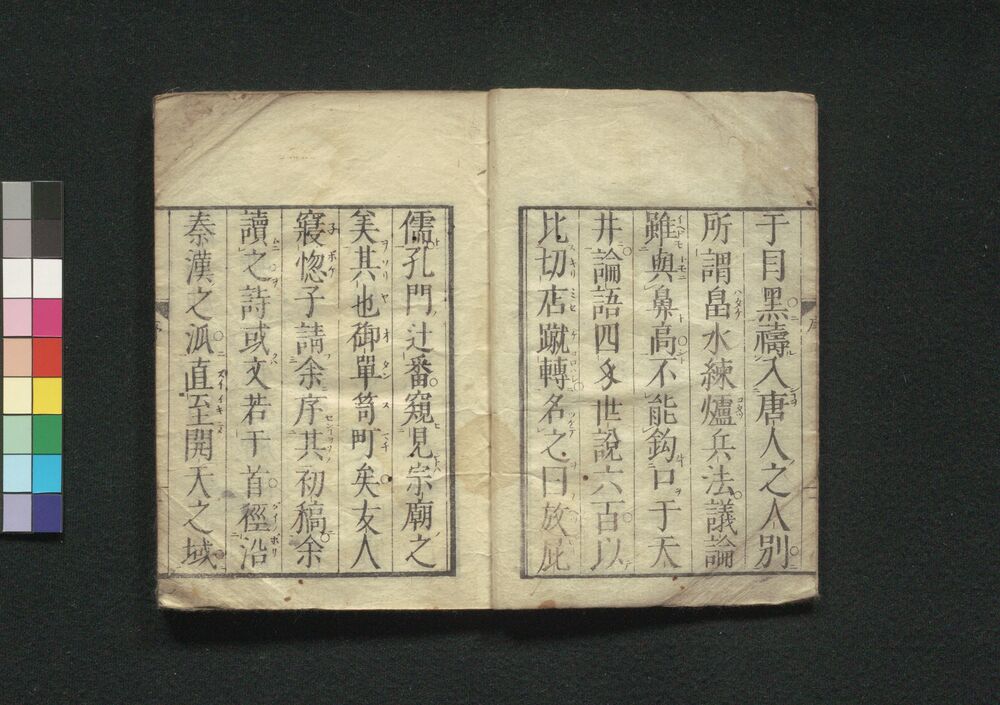 于目黑禱入唐人之人別
所謂畠水練爐兵法議論
雖與鼻高不能鈎口于天
井論語四多世說六百以
比切店蹴轉名之曰放屁
儒孔門辻番窺見宗廟之
美其也御單笥町矣友人
寢惚子請余序其初稿余
讀之詩或文若干首徑沿
秦漢之派直至開天之域